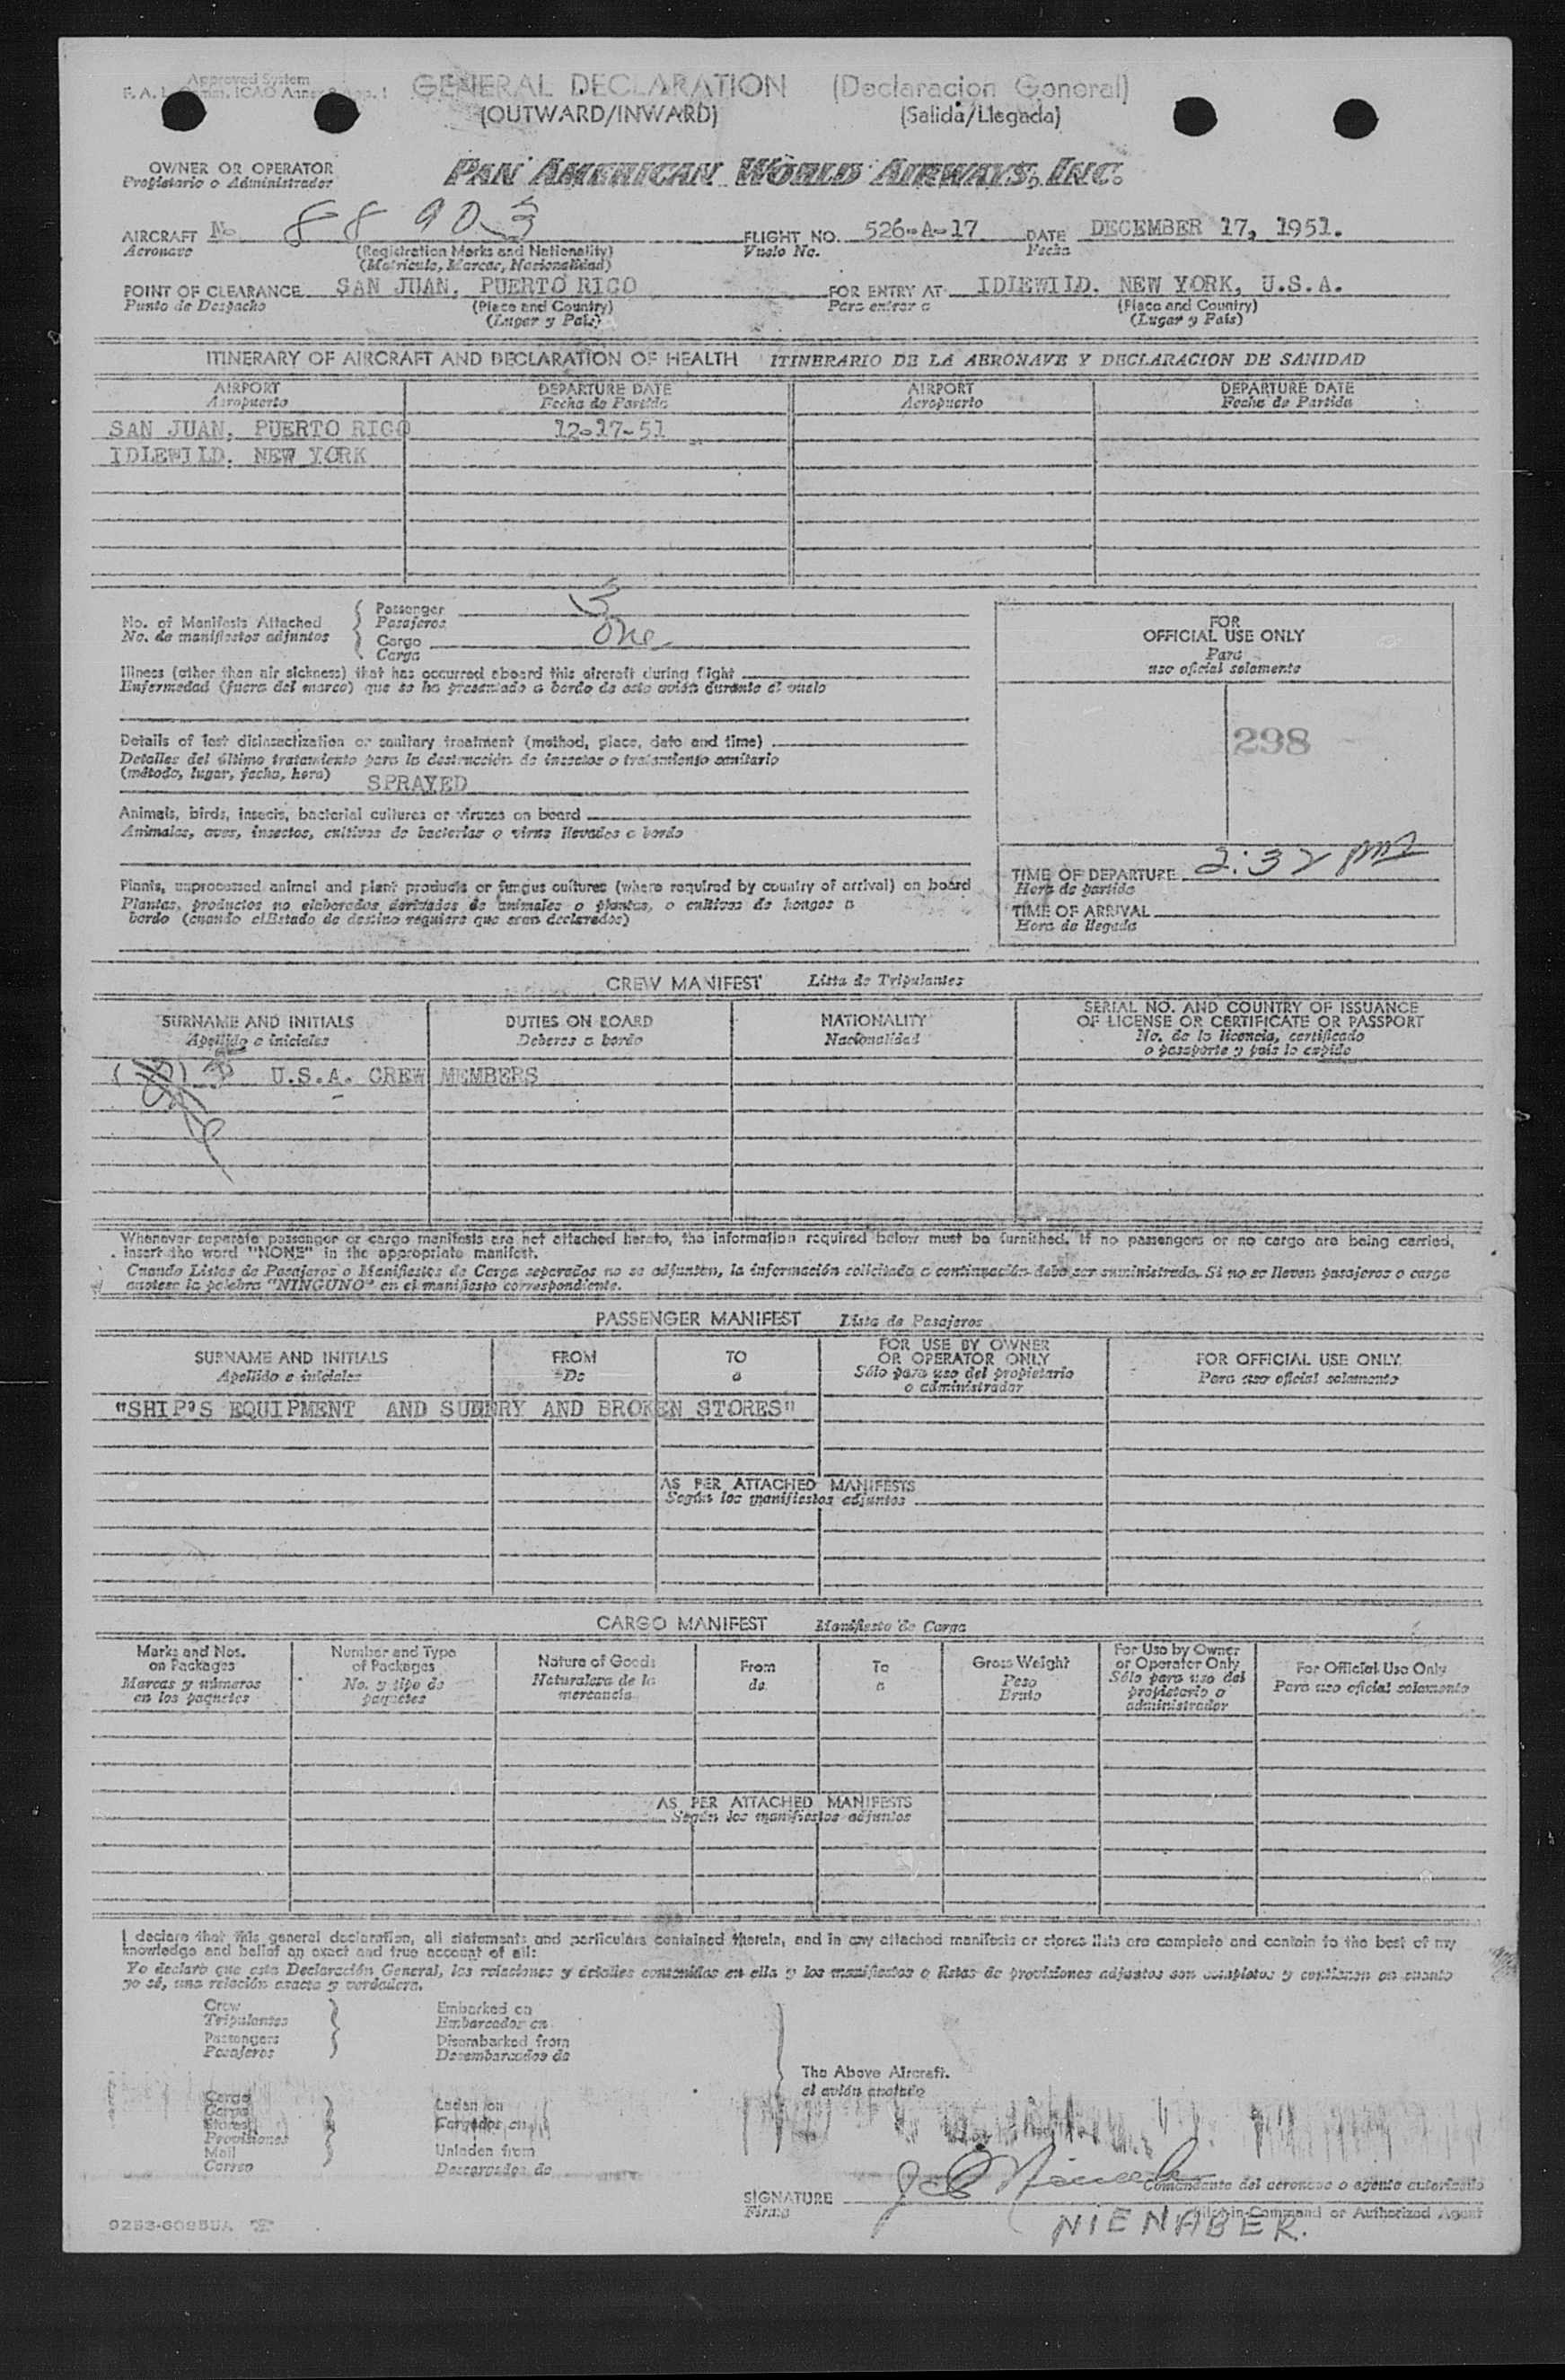 Approved System
GENERAL DECLARATION (Declaracion General)
(OUTWARD/INWARD) (Salida/Llegada)
OWNER OR OPERATOR PAN AMERICAN WORLD AIRWAYS, INC.
Propietario o Administrador
AIRCRAFT No 88903 FLIGHT NO. 526-A-17 DATE DECEMBER 17, 1951.
Aeronave (Registration Marks and Nationality) Vuelo No. Fecha
(Matricula, Marcas, Nacionalidad)
POINT OF CLEARANCE SAN JUAN, PUERTO RICO FOR ENTRY AT IDLEWILD. NEW YORK, U.S.A.
Punto de Despacho (Place and Country) Para entrar a (Place and Country)
(Lugar y País) (Lugar y País)
ITINERARY OF AIRCRAFT AND DECLARATION OF HEALTH ITINERARIO DE LA AERONAVE Y DECLARACION DE SANIDAD
AIRPORT DEPARTURE DATE AIRPORT DEPARTURE DATE
Aeropuerto Fecha de Partida Aeropuerto Fecha de Partida
SAN JUAN, PUERTO RICO 12-17-51
IDLEWILD. NEW YORK
Passenger 3
No. of Manifests Attached Pasajeros
No. de manifiestos adjuntos Cargo One
Carga
Illness (other than air sickness) that has occurred aboard this aircraft during flight
Enfermedad (fuera del mareo) que se ha presentado a bordo de este avión durante el vuelo
Details of last disinsectization or sanitary treatment (method, place, date and time)
Detalles del último tratamiento para la destrucción de insectos o tratamiento sanitario
(método, lugar, fecha, hora) SPRAYED
Animals, birds, insects, bacterial cultures or viruses on board
Animales, aves, insectos, cultivos de bacterias o virus llevados a bordo
Plants, unprocessed animal and plant products or fungus cultures (where required by country of arrival) on board
Plantas, productos no elaborados derivados de animales o plantas, o cultivos de hongos a
bordo (cuando el Estado de destino requiere que sean declarados)
FOR
OFFICIAL USE ONLY
Para
uso oficial solamente
298
TIME OF DEPARTURE 2:32 pm
Hora de partida
TIME OF ARRIVAL
Hora de llegada
CREW MANIFEST Lista de Tripulantes
SURNAME AND INITIALS DUTIES ON BOARD NATIONALITY SERIAL NO. AND COUNTRY OF ISSUANCE
OF LICENSE OR CERTIFICATE OR PASSPORT
Apellido e iniciales Deberes a bordo Nacionalidad No. de la licencia, certificado
o pasaporte y país lo expide
U.S.A. CREW MEMBERS
Whenever separate passenger or cargo manifests are not attached hereto, the information required below must be furnished. If no passengers or no cargo are being carried,
insert the word "NONE" in the appropriate manifest.
Cuando Listas de Pasajeros o Manifiestos de Carga separados no se adjunten, la información solicitada a continuación debe ser suministrada. Si no se llevan pasajeros o carga
anotese la palabra "NINGUNO" en el manifiesto correspondiente.
PASSENGER MANIFEST Lista de Pasajeros
SURNAME AND INITIALS FROM TO FOR USE BY OWNER OR OPERATOR ONLY FOR OFFICIAL USE ONLY
Apellido e iniciales De a Sólo para uso del propietario o administrador Para uso oficial solamente
"SHIP'S EQUIPMENT AND SUNDRY AND BROKEN STORES"
AS PER ATTACHED MANIFESTS
Según los manifiestos adjuntos
CARGO MANIFEST Manifiesto de Carga
Marks and Nos. on Packages Number and Type of Packages Nature of Goods From To Gross Weight For Use by Owner or Operator Only For Official Use Only
Marcas y números en los paquetes No. y tipo de paquetes Naturaleza de la mercancía de a Peso Bruto Sólo para uso del propietario o administrador Para uso oficial solamente
AS PER ATTACHED MANIFESTS
Según los manifiestos adjuntos
I declare that this general declaration, all statements and particulars contained therein, and in any attached manifests or stores lists are complete and contain to the best of my
knowledge and belief an exact and true account of all:
Yo declaro que esta Declaración General, las relaciones y detalles contenidas en ella y los manifiestos o listas de provisiones adjuntos son completos y contienen en cuanto
yo sé, una relación exacta y verdadera.
Crew Embarked on
Tripulantes Embarcados en
Passengers Disembarked from
Pasajeros Desembarcados de
The Above Aircraft.
el avión anotado
Cargo Laden on
Carga Cargados en
Stores
Provisiones
Mail Unladen from
Correo Descargados de
Comandante del aeronave o agente autorizado
SIGNATURE
Firma Pilot-in-Command or Authorized Agent
NIENABER.